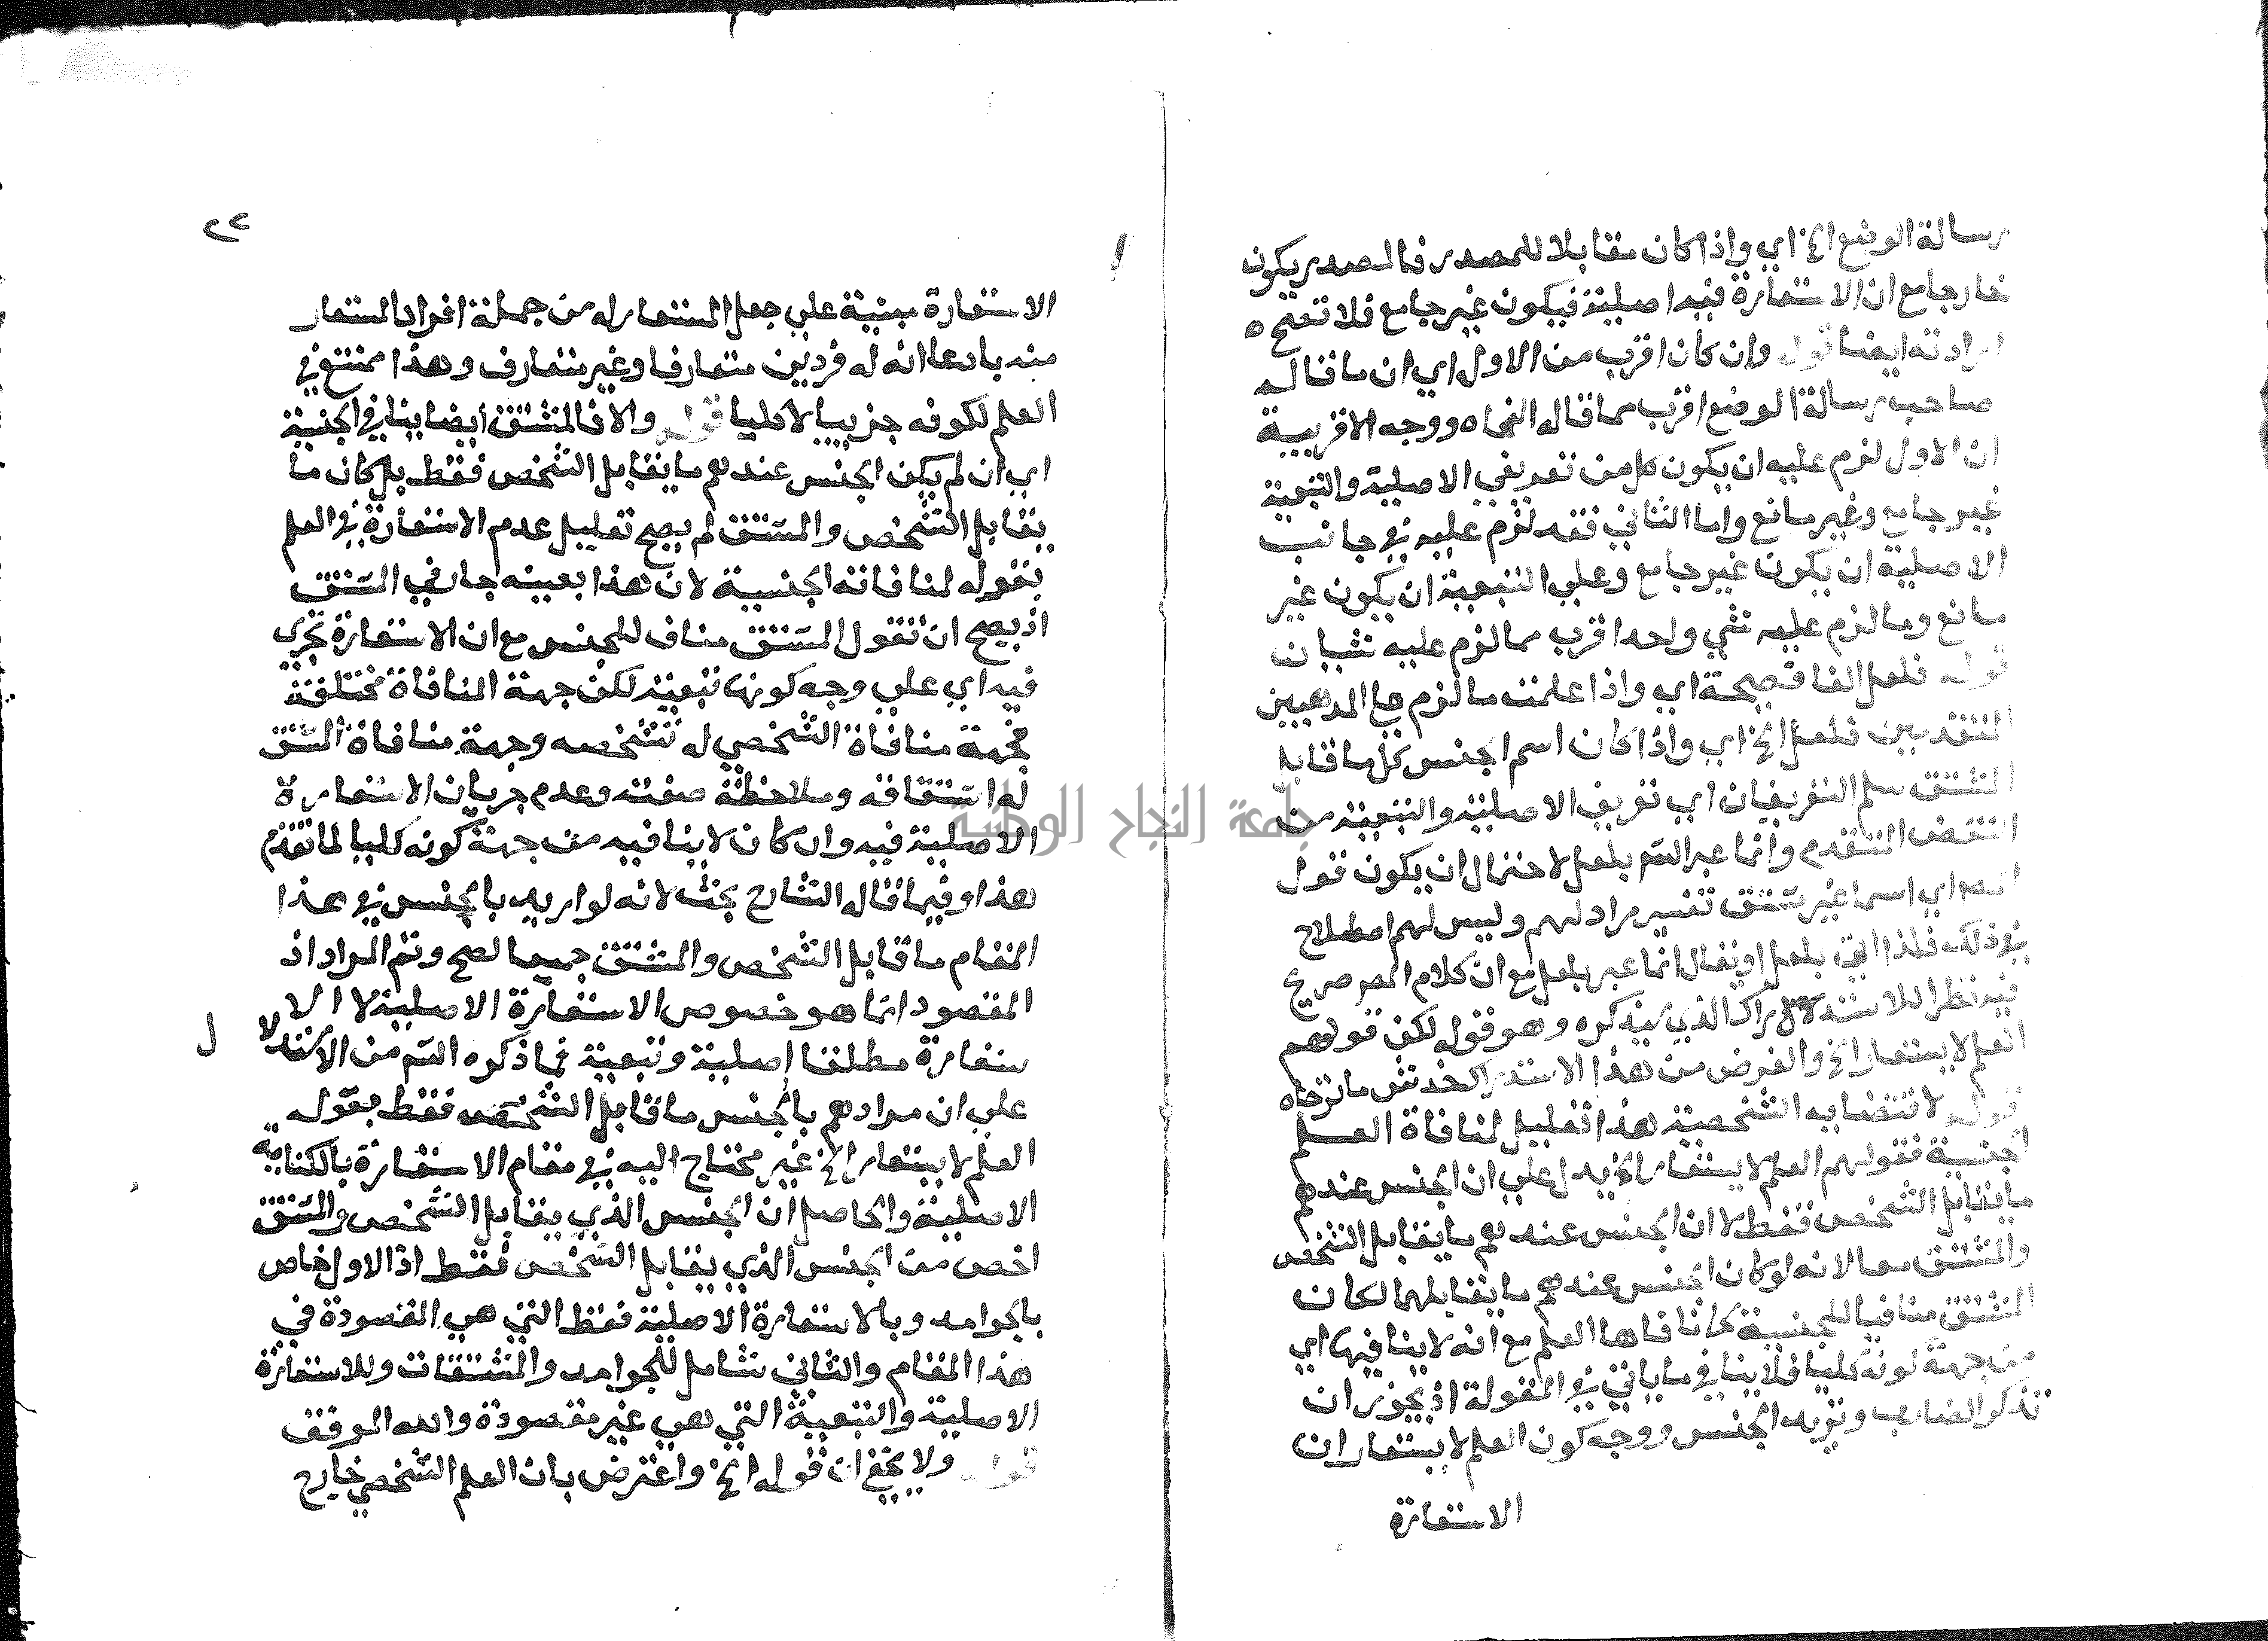 رسالة الوضع الخ اي واذا كان مقابلا للمصدر فالمصدر يكون
خارجا مع ان الاستعارة فيه اصلية فيكون غير جامع فلا تصح ه
ارادته ايضا قوله وان كان اقرب من الاول اي ان ما قاله
صاحب رسالة الوضع اقرب مما قال النحاه ووجه الاقربية
ان الاول لزم عليه ان يكون كل من تعريفي الاصلية والتبعية
غير جامع وغير مانع واما الثاني فقد لزم عليه في جانب
الاصلية ان يكون غير جامع وعلي التبعية ان يكون غير
مانع وما لزم عليه شي واحد اقرب مما لزم عليه شيان
قوله فلعل الفا فصيحة اي واذا علمت ما لزم علي المذهبين
المتقدمين فلعل الخ اي واذا كان اسم الجنس كل ما قابل
المشتق سلم التعريفان اي تعريف الاصلية والتبعية من
النقض المتقدم وانما عبر الشم بلعل لاحتمال ان يكون قول
المصم اي اسما غير مشتق تفسير مراد لهم وليس لهم اصطلاح
في ذلك فلذا اتي بلعل او يقال انما عبر بلعل مع ان كلام المصر صريح
فيه نظرا للاستدراك الذي سيذكره وهو قوله لكن قولهم
العلم لا يستعار الخ والغرض من هذا الاستدراك خدش ما ترجاه
قوله لاقتضايه الشخصية هذا تعليل لمنافاة العلم
الجنسية فقولهم العلم لا يستعار الخ يدل علي ان الجنس عندهم
ما يقابل الشخص فقط لا ان الجنس عندهم ما يقابل الشخص
والمشتق معا لانه لو كان الجنس عندهم ما يقابلهما لكان
المشتق منافيا للجنسية كما نافاها العلم مع انه لا ينافيها اي
من جهة كونه كليا فلا ينافي ما ياتي في المقولة اذ يجوز ان
تذكر الضارب وتريد الجنس ووجه كون العلم لا يستعار ان
الاستعارة
٢٢
الاستعارة مبنية علي جعل المستعار له من جملة افراد المستعار
منه بادعا انه له فردين متعارفا وغير متعارف وهذا ممتنع في
العلم لكونه جزييا لا كليا قوله والا فالمشتق ايضا ينافي الجنسية
اي ان لم يكن الجنس عندهم ما يقابل الشخص فقط بل كان ما
يقابل الشخص والمشتق لم يصح تعليل عدم الاستعارة في العلم
بقوله لمنافاته الجنسية لان هذا بعينه جار في المشتق
اذ يصح ان تقول المشتق مناف للجنس مع ان الاستعارة تجري
فيه اي علي وجه كونها تبعية لكن جهة المنافاة مختلفة
فجهة منافاة الشخصي له تشخصه وجهة منافاة المشتق
له اشتقاقه وملاحظة صفته وعدم جريان الاستعارة
الاصلية فيه وان كان لا ينافيه من جهة كونه كليا لما تقدم
هذا وفيما قال الشارح بحث لانه لو اريد بالجنس في هذا
المقام ما قابل الشخص والمشتق جميعا لصح وتم المراد اذ
المقصود انما هو خصوص الاستعارة الاصلية لا الا
ستعارة مطلقا اصلية وتبعية فما ذكره الشم من الاستدلا ل
علي ان مرادهم بالجنس ما قابل الشخص فقط بقوله
العلم لا يستعار الخ غير محتاج اليه في مقام الاستعارة بالكناية
الاصلية والحاصل ان الجنس الذي يقابل الشخص والمشتق
اخص من الجنس الذي يقابل الشخص فقط اذ الاول خاص
بالجوامد وبالاستعارة الاصلية فقط التي هي المقصودة في
هذا المقام والثاني شامل للجوامد والمشتقات وللاستعارة
الاصلية والتبعية التي هي غير مقصودة والله الموفق
قوله ولا يخفي ان قوله الخ واعترض بان العلم الشخصي خارج
جامعة النجاح الوطنية